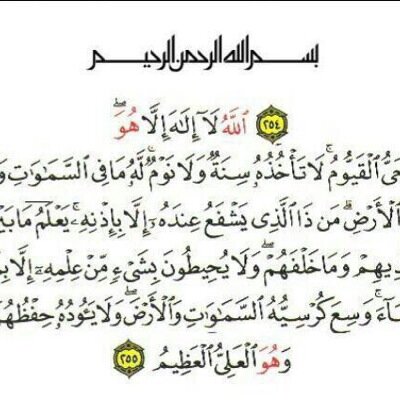 بسم الله الرحمن الرحيم
٢٥٤ ٱللَّهُ لَآ إِلَٰهَ إِلَّا هُوَۖ
حَىُّ ٱلْقَيُّومُۚ لَا تَأْخُذُهُۥ سِنَةٌ وَلَا نَوْمٌۚ لَّهُۥ مَا فِى ٱلسَّمَٰوَٰتِ وَ
ٱلْأَرْضِۗ مَن ذَا ٱلَّذِى يَشْفَعُ عِندَهُۥٓ إِلَّا بِإِذْنِهِۦۚ يَعْلَمُ مَا بَيْ
دِيهِمْ وَمَا خَلْفَهُمْۖ وَلَا يُحِيطُونَ بِشَىْءٍ مِّنْ عِلْمِهِۦٓ إِلَّا بِ
آءَۚ وَسِعَ كُرْسِيُّهُ ٱلسَّمَٰوَٰتِ وَٱلْأَرْضَۖ وَلَا يَـُٔودُهُۥ حِفْظُهُ
وَهُوَ ٱلْعَلِىُّ ٱلْعَظِيمُ ٢٥٥